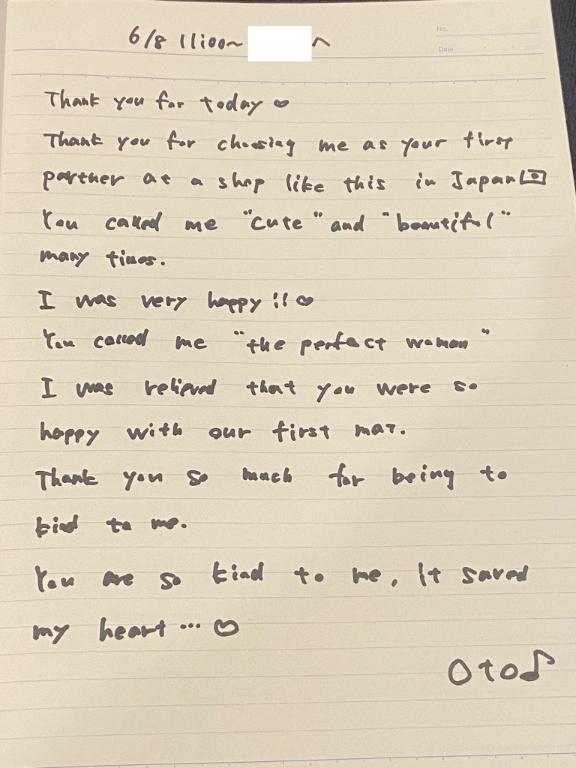 6/8 11:00~ へ
No.
Date
Thank you for today ♡
Thank you for choosing me as your first
partner at a shop like this in Japan🇯🇵
You called me "cute" and "beautiful"
many times.
I was very happy!!♡
You called me "the perfect woman"
I was relieved that you were so
happy with our first mat.
Thank you so much for being to
kind to me.
You are so kind to me, It saved
my heart…♡
Oto♪